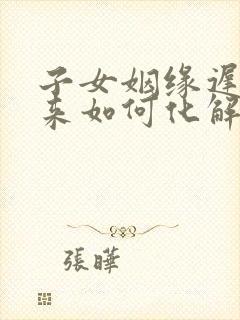 子女姻缘遲
来如何化解
張曄